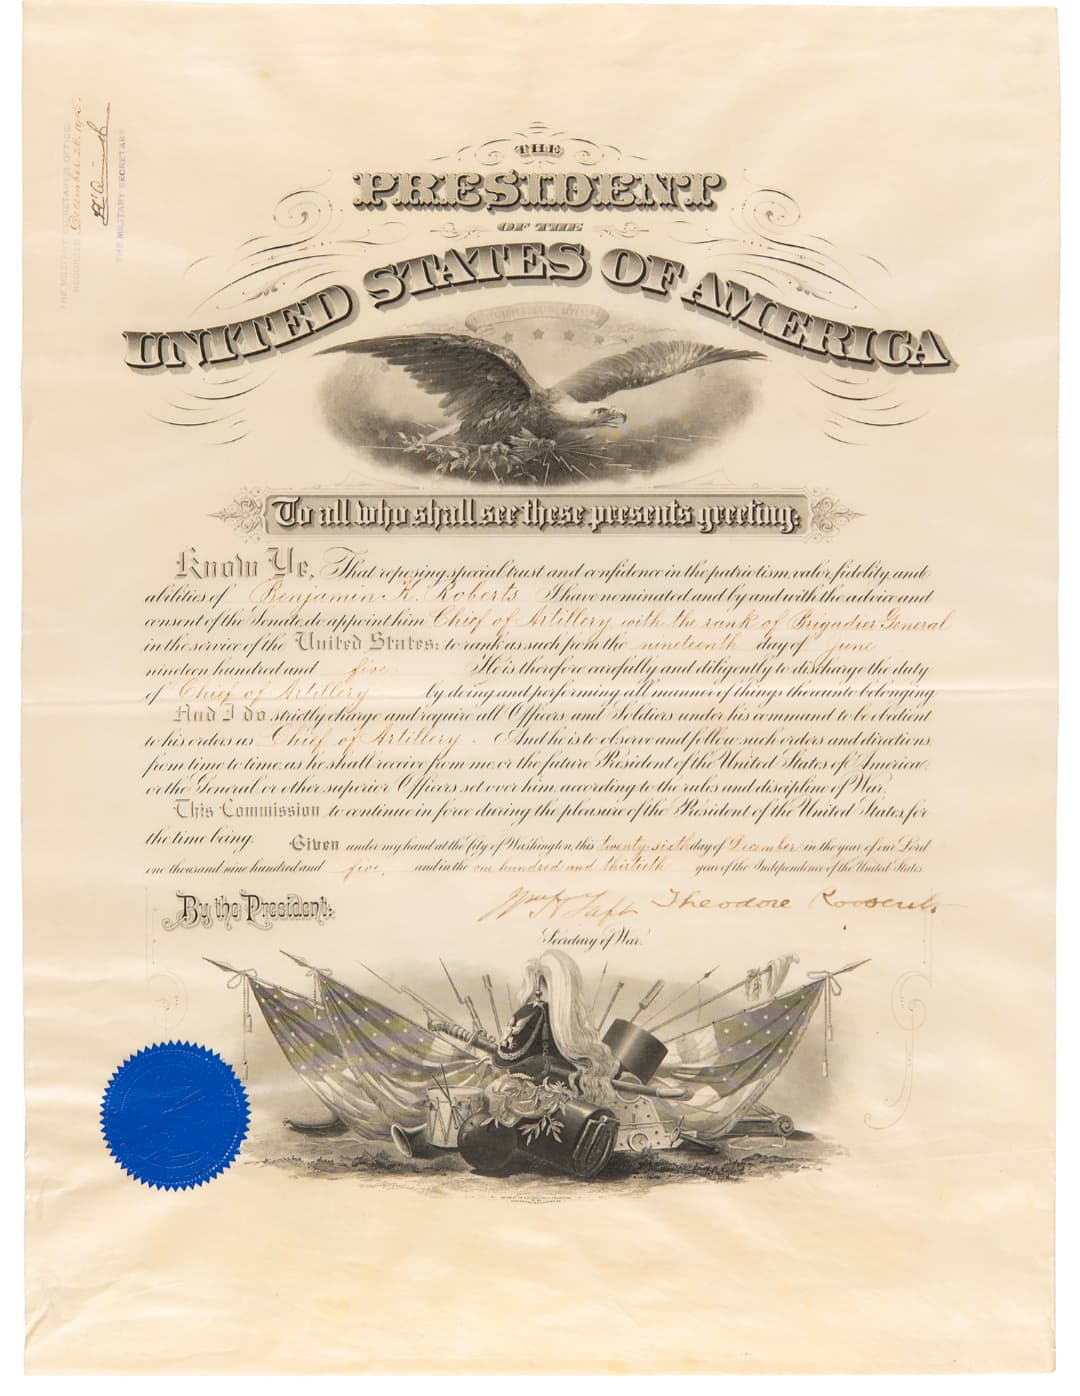 THE MILITARY SECRETARY'S OFFICE,
RECORDED December 26, 1905.
THE MILITARY SECRETARY.
THE
PRESIDENT
OF THE
UNITED STATES OF AMERICA
To all who shall see these presents greeting:
Know Ye, That reposing special trust and confidence in the patriotism, valor, fidelity and
abilities of Benjamin K. Roberts I have nominated and by and with the advice and
consent of the Senate, do appoint him Chief of Artillery with the rank of Brigadier General
in the service of the United States: to rank as such from the nineteenth day of June
nineteen hundred and five. He is therefore carefully and diligently to discharge the duty
of Chief of Artillery by doing and performing all manner of things thereunto belonging.
And I do strictly charge and require all Officers and Soldiers under his command to be obedient
to his orders as Chief of Artillery. And he is to observe and follow such orders and directions
from time to time, as he shall receive from me, or the future President of the United States of America,
or the General or other superior Officers set over him, according to the rules and discipline of War.
This Commission to continue in force during the pleasure of the President of the United States, for
the time being. Given under my hand at the City of Washington, this twenty-sixth day of December in the year of our Lord
one thousand nine hundred and five, and in the one hundred and thirtieth year of the Independence of the United States.
By the President: Wm H Taft Theodore Roosevelt
Secretary of War.